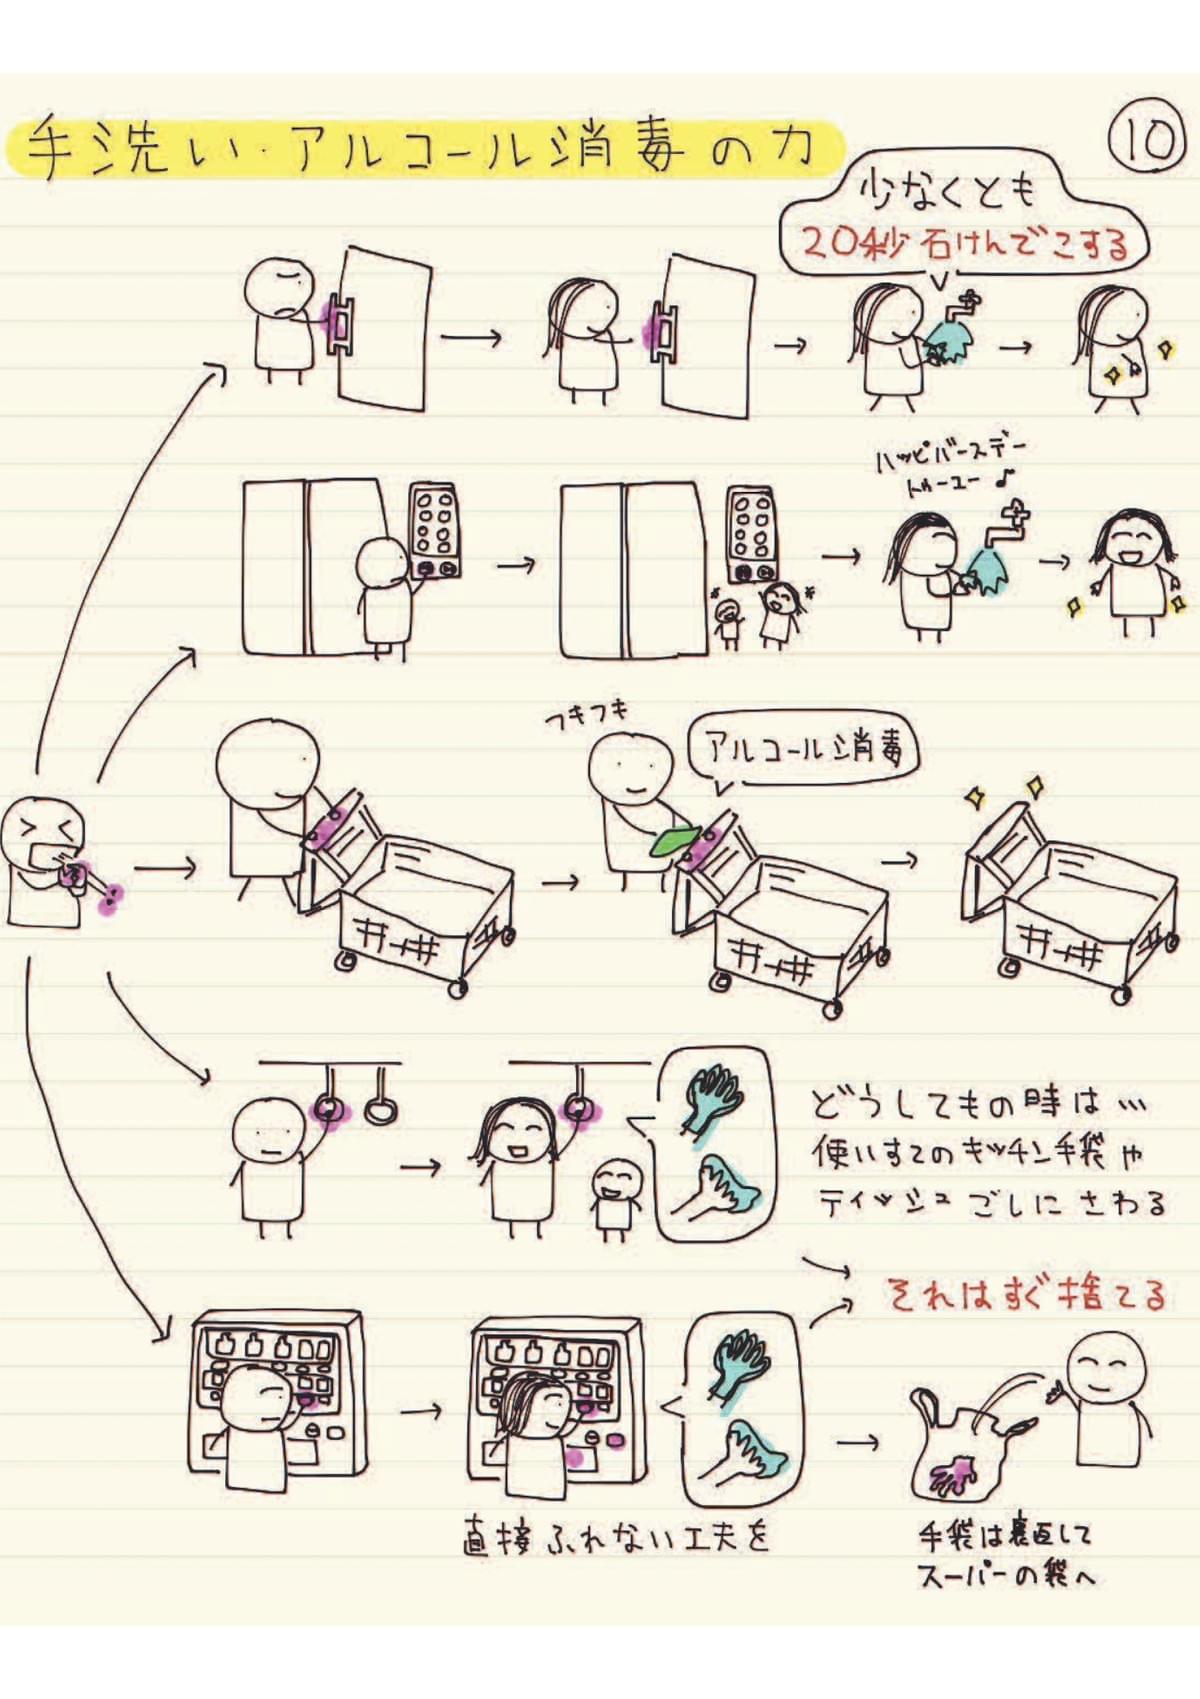 手洗い・アルコール消毒の力
10
少なくとも
20秒石けんでこする
ハッピバースデー
トゥーユー♪
フキフキ
アルコール消毒
どうしてもの時は…
使いすてのキッチン手袋や
ティッシュごしにさわる
それはすぐ捨てる
直接ふれない工夫を
手袋は裏返して
スーパーの袋へ